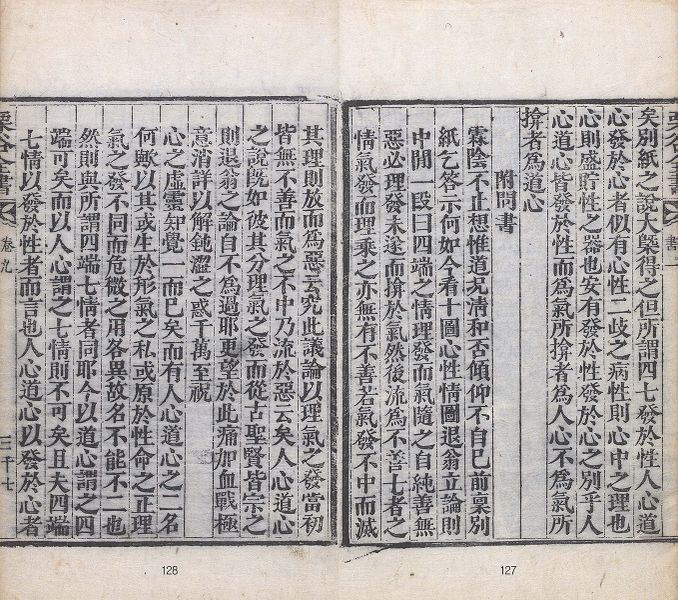 栗谷全書 書一
矣別紙之說大槩得之但所謂四七發於性人心道
心發於心者似有心性二歧之病性則心中之理也
心則盛貯性之器也安有發於性發於心之別乎人
心道心皆發於性而爲氣所揜者爲人心不爲氣所
揜者爲道心
附問書
霖陰不止想惟道况清和否傾仰不自已前稟別
紙乞答示何如今看十圖心性情圖退翁立論則
中間一段曰四端之情理發而氣隨之自純善無
惡必理發未遂而揜於氣然後流爲不善七者之
情氣發而理乘之亦無有不善若氣發不中而滅
127
其理則放而爲惡云究此議論以理氣之發當初
皆無不善而氣之不中乃流於惡云矣人心道心
之說旣如彼其分理氣之發而從古聖賢皆宗之
則退翁之論自不爲過耶更望於此痛加血戰極
意消詳以解鈍澁之惑千萬至祝
心之虛靈知覺一而已矣而有人心道心之二名
何歟以其或生於形氣之私或原於性命之正理
氣之發不同而危微之用各異故名不能不二也
然則與所謂四端七情者同耶今以道心謂之四
端可矣而以人心謂之七情則不可矣且夫四端
七情以發於性者而言也人心道心以發於心者
栗谷全書 卷九 三十七
128